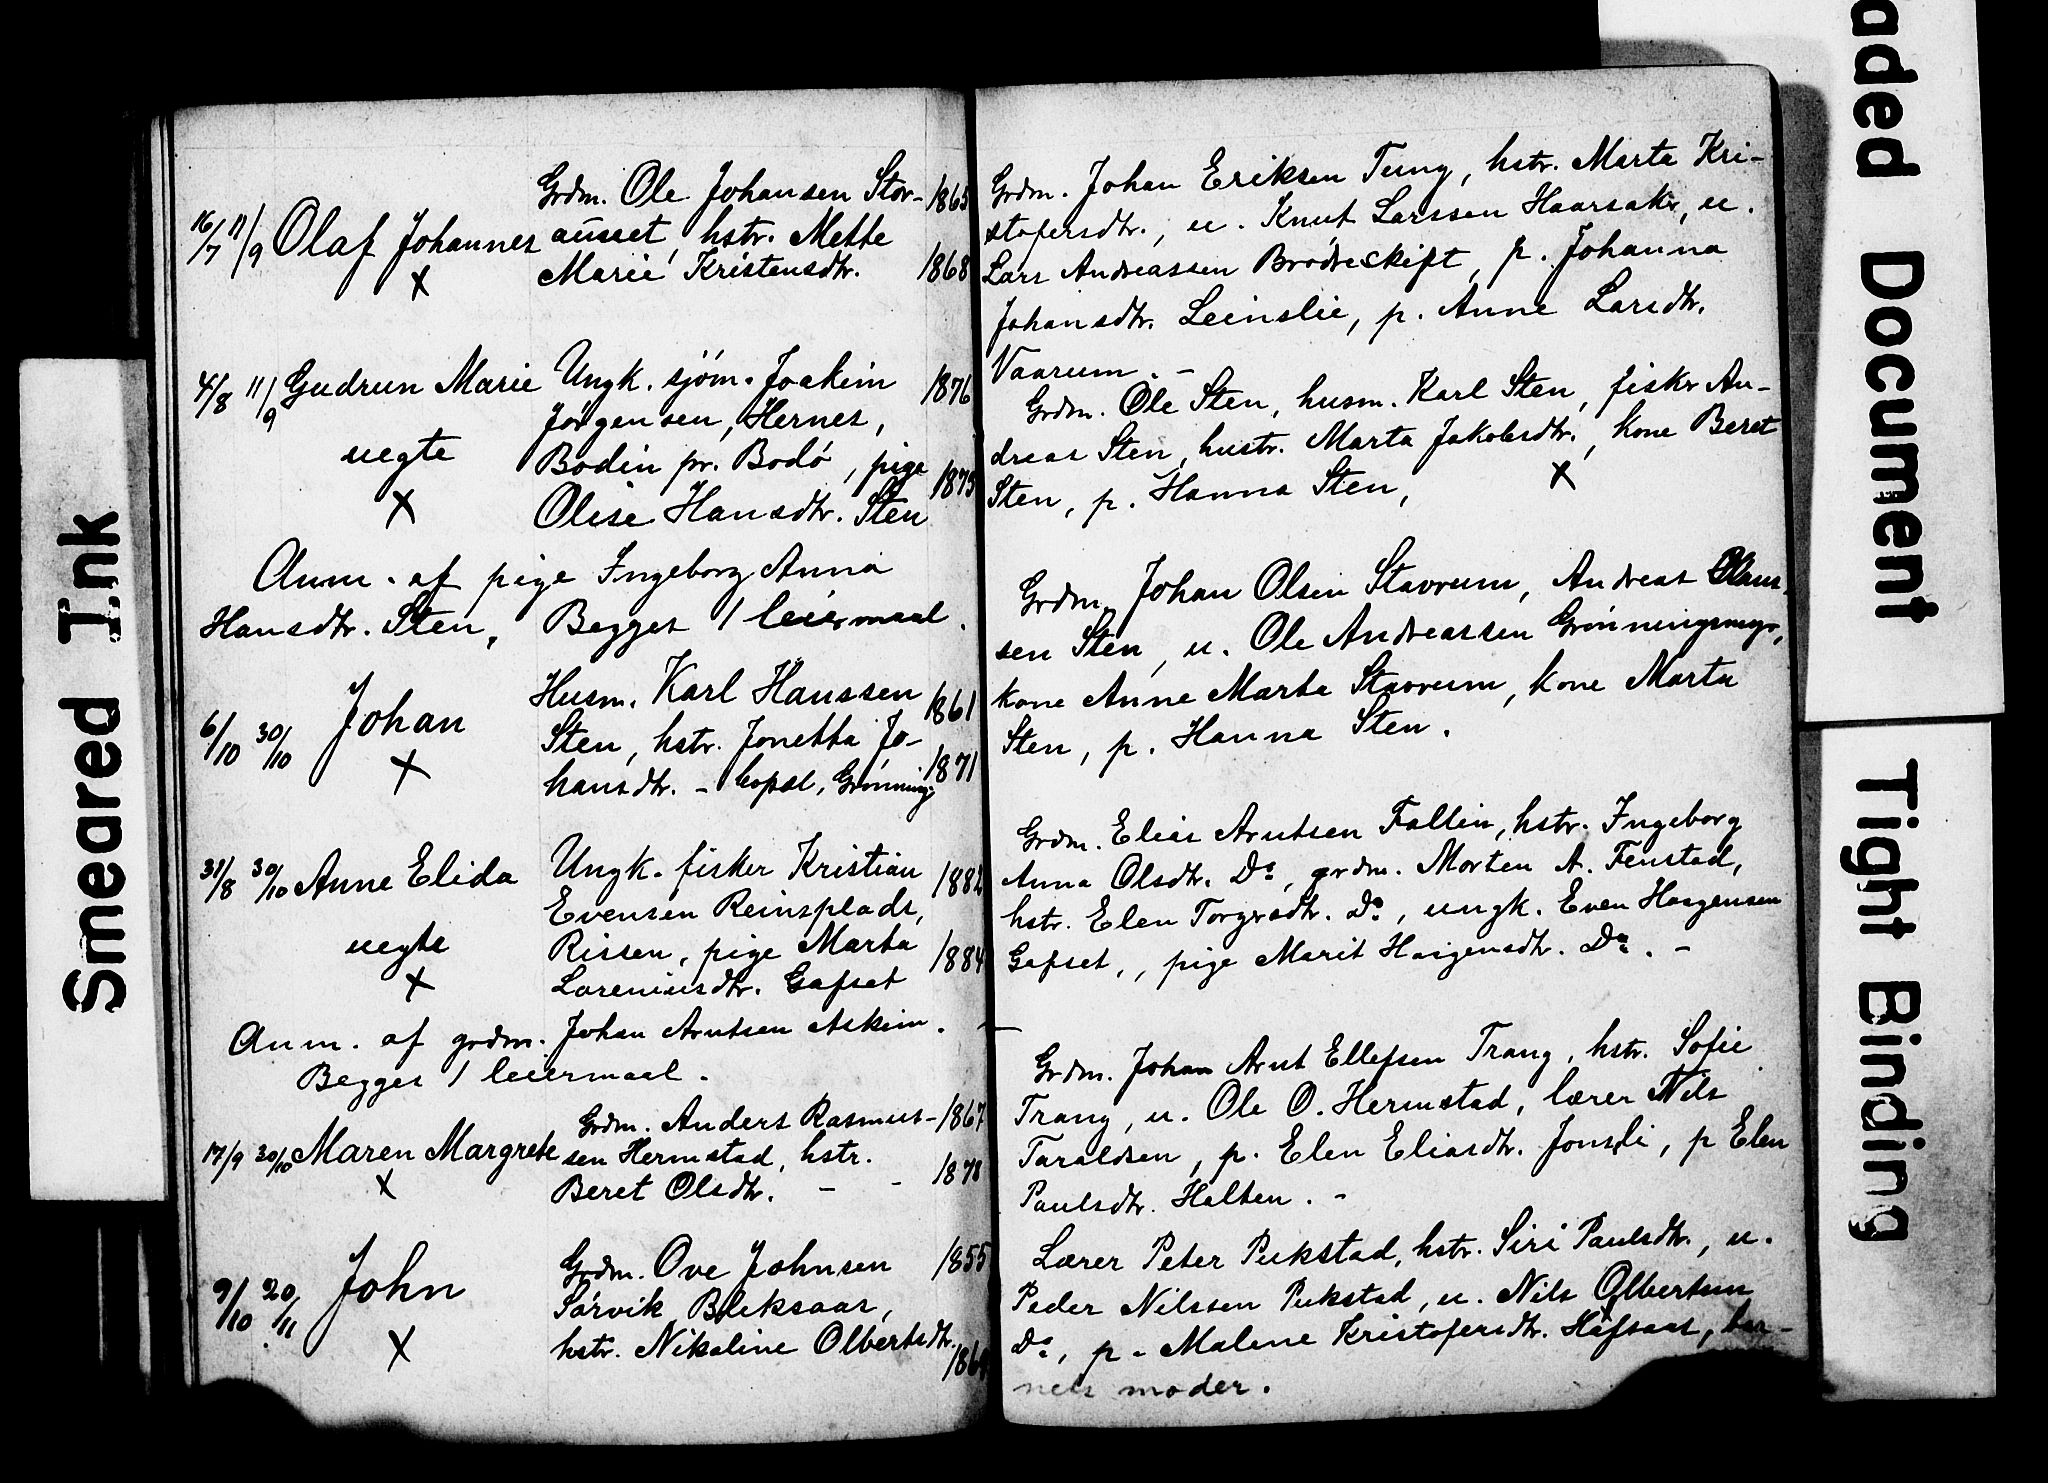 Grdm. Ole Johansen Stor- 1865
16/7 11/9 Olaf Johannes auneet, hstr. Mette
Marie Kristensdtr. 1868
X
4/8 11/9 Gudrun Marie Ungk. sjøm. Joakim 1876
Jørgensen, Hernes,
uegte Bodin pr. Bodø, pige 1873
X Olise Hansdtr. Sten
Anm. af pige Ingeborg Anna
Hansdtr. Sten, Begges 1 leiermaal.
Husm. Karl Hanssen 1861
6/10 30/10 Johan Sten, hstr. Jonetta Jo- 1871
X hansdtr. - bopæl, Grønning.
31/8 30/10 Anne Elida Ungk. fisker Kristian 1882
Evensen Reinsplads,
uegte Rissen, pige Marta 1884
X Loreniusdtr. Gafset
Anm. af grdm. Johan Arntsen Askim. -
Begges 1 leiermaal.
Grdm. Anders Rasmus- 1867
17/9 30/10 Maren Margrete sen Hermstad, hstr. 1878
X Beret Olsdtr. - -
Grdm. Ove Johnsen 1855
9/10 20/11 John Sørvik Bleksaas,
X hstr. Nikoline Olbertsdtr. 1864
Grdm. Johan Eriksen Tung, hstr. Marta Kri-
stofersdtr., u. Knut Larssen Haarsaker, u.
Lars Andreassen Brødreskift, p. Johanna
Johansdtr. Leinslie, p. Anne Larsdtr.
Vaarum. -
Grdm. Ole Sten, husm. Karl Sten, fisker An-
dreas Sten, hustr. Marta Jakobsdtr., kone Beret
Sten, p. Hanna Sten, X
Grdm. Johan Olsen Stavrum, Andreas Hans-
sen Sten, u. Ole Andreassen Grønningsmyr,
kone Anne Marta Stavrum, kone Marta
Sten, p. Hanna Sten.
Grdm. Elias Arntsen Fallin, hstr. Ingeborg
Anna Olsdtr. Do, grdm. Morten A. Fenstad,
hstr. Elen Torgersdtr. Do, ungk. Even Haagensen
Gafset, , pige Marit Haagensdtr. Do. -
Grdm. Johan Arnt Ellefsen Trang, hstr. Sofie
Trang, u. Ole O. Hermstad, lærer Nils
Taraldsen, p. Elen Eliasdtr. Jonsli, p Elen
Paulsdtr. Halten. -
Lærer Peter Pukstad, hstr. Siri Paulsdtr., u.
Peder Nilssen Pukstad, u. Nils Olbertsen
Do, p. Malene Kristofersdtr. Hafsaas, bar-
nets moder.
Smeared Ink
aded Document
Tight Binding